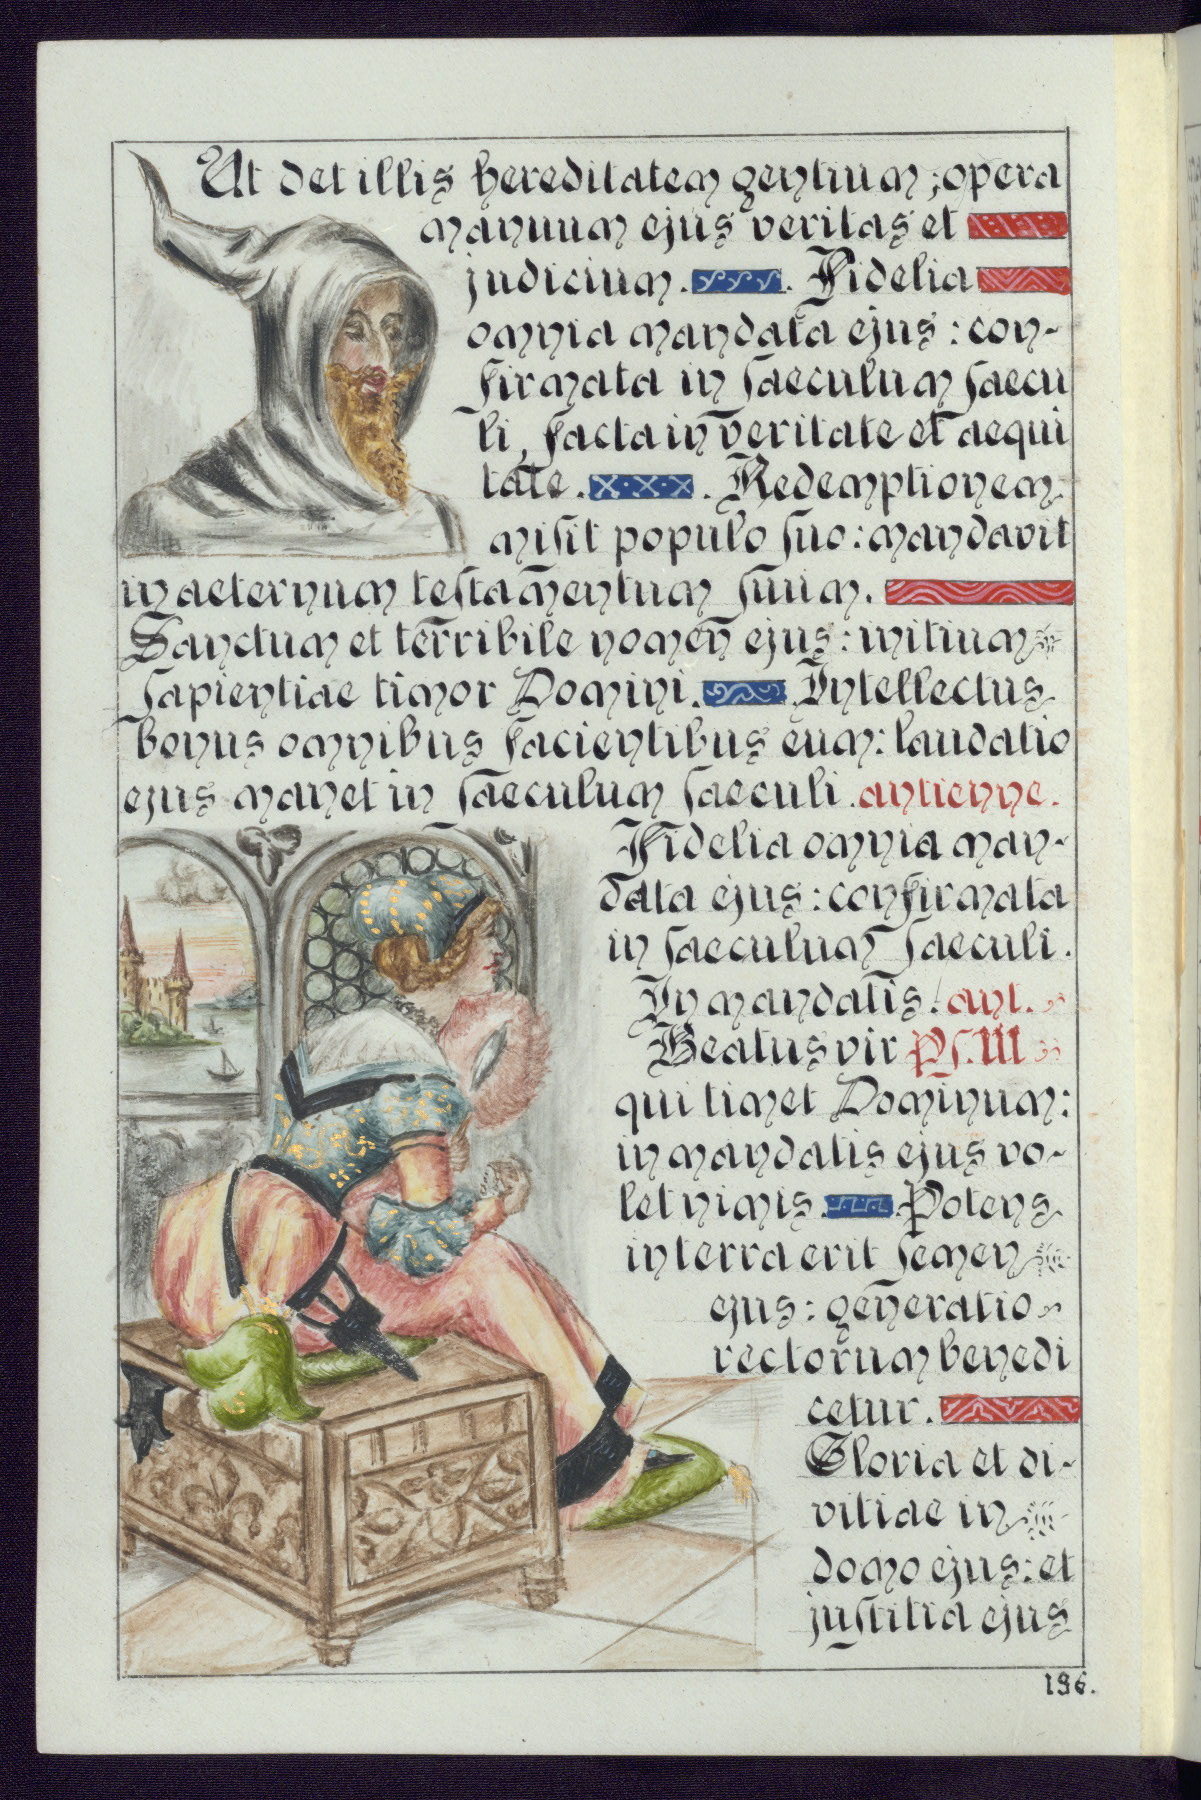 Ut det illis hereditatem gentium ; opera
manuum ejus veritas et
judicium. Fidelia
omnia mandata ejus : con-
firmata in saeculum saecu
li, facta in veritate et aequi
tate. Redemptionem
misit populo suo : mandavit
in aeternum testamentum suum.
Sanctum et terribile nomen ejus : initium
sapientiae timor Domini. Intellectus
bonus omnibus facientibus eum : laudatio
ejus manet in saeculum saeculi. antienne.
Fidelia omnia man-
data ejus : confirmata
in saeculum saeculi.
In mandatis. ant.
Beatus vir Ps. III
qui timet Dominum :
in mandatis ejus vo-
let nimis. Potens
in terra erit semen
ejus : generatio
rectorum benedi
cetur.
Gloria et di-
vitiae in
domo ejus : et
justitia ejus
196.